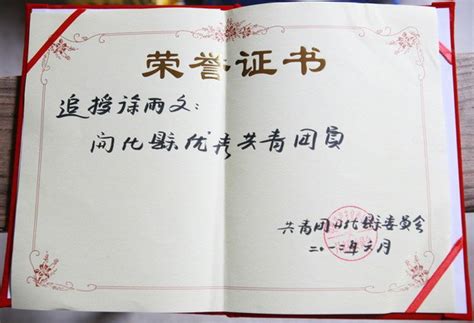 荣誉证书
追授徐雨文：
开化县优秀共青团员
共青团开化县委员会
二〇一二年六月